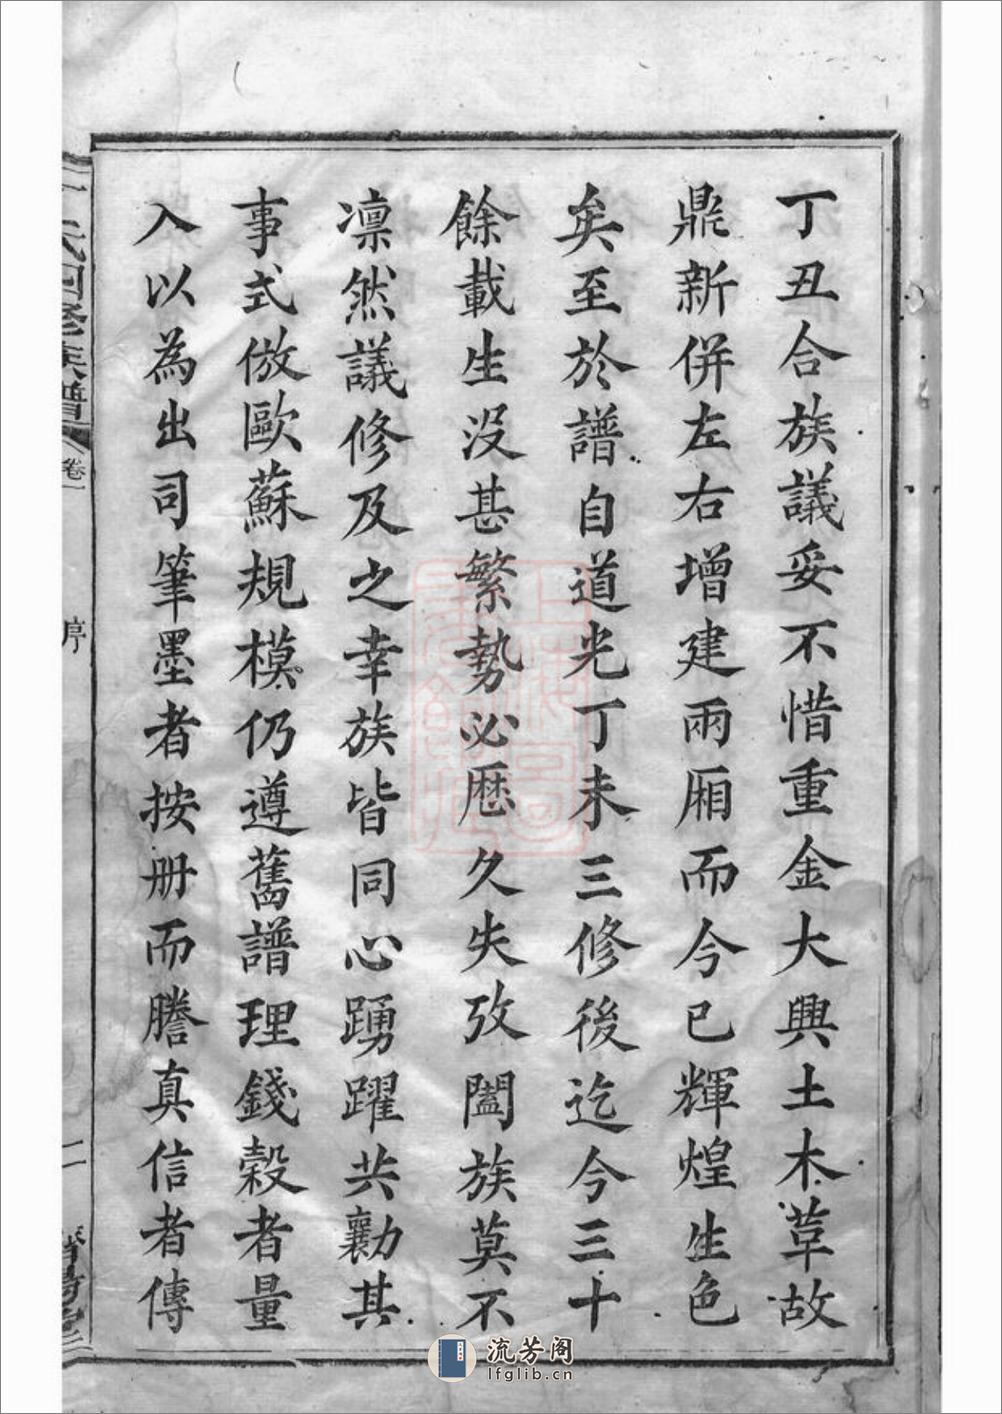 丁丑合族議妥不惜重金大興土木草故
鼎新併左右增建兩厢而今已輝煌生色
矣至於譜自道光丁未三修後迄今三十
餘載生沒甚繁勢必歷久失攷闔族莫不
凛然議修及之幸族皆同心踴躍共勷其
事式倣歐蘇規模仍遵舊譜理錢穀者量
入以為出司筆墨者按册而謄真信者傳
氏四修族譜
卷一
序
二
流芳阁
lfglib.cn